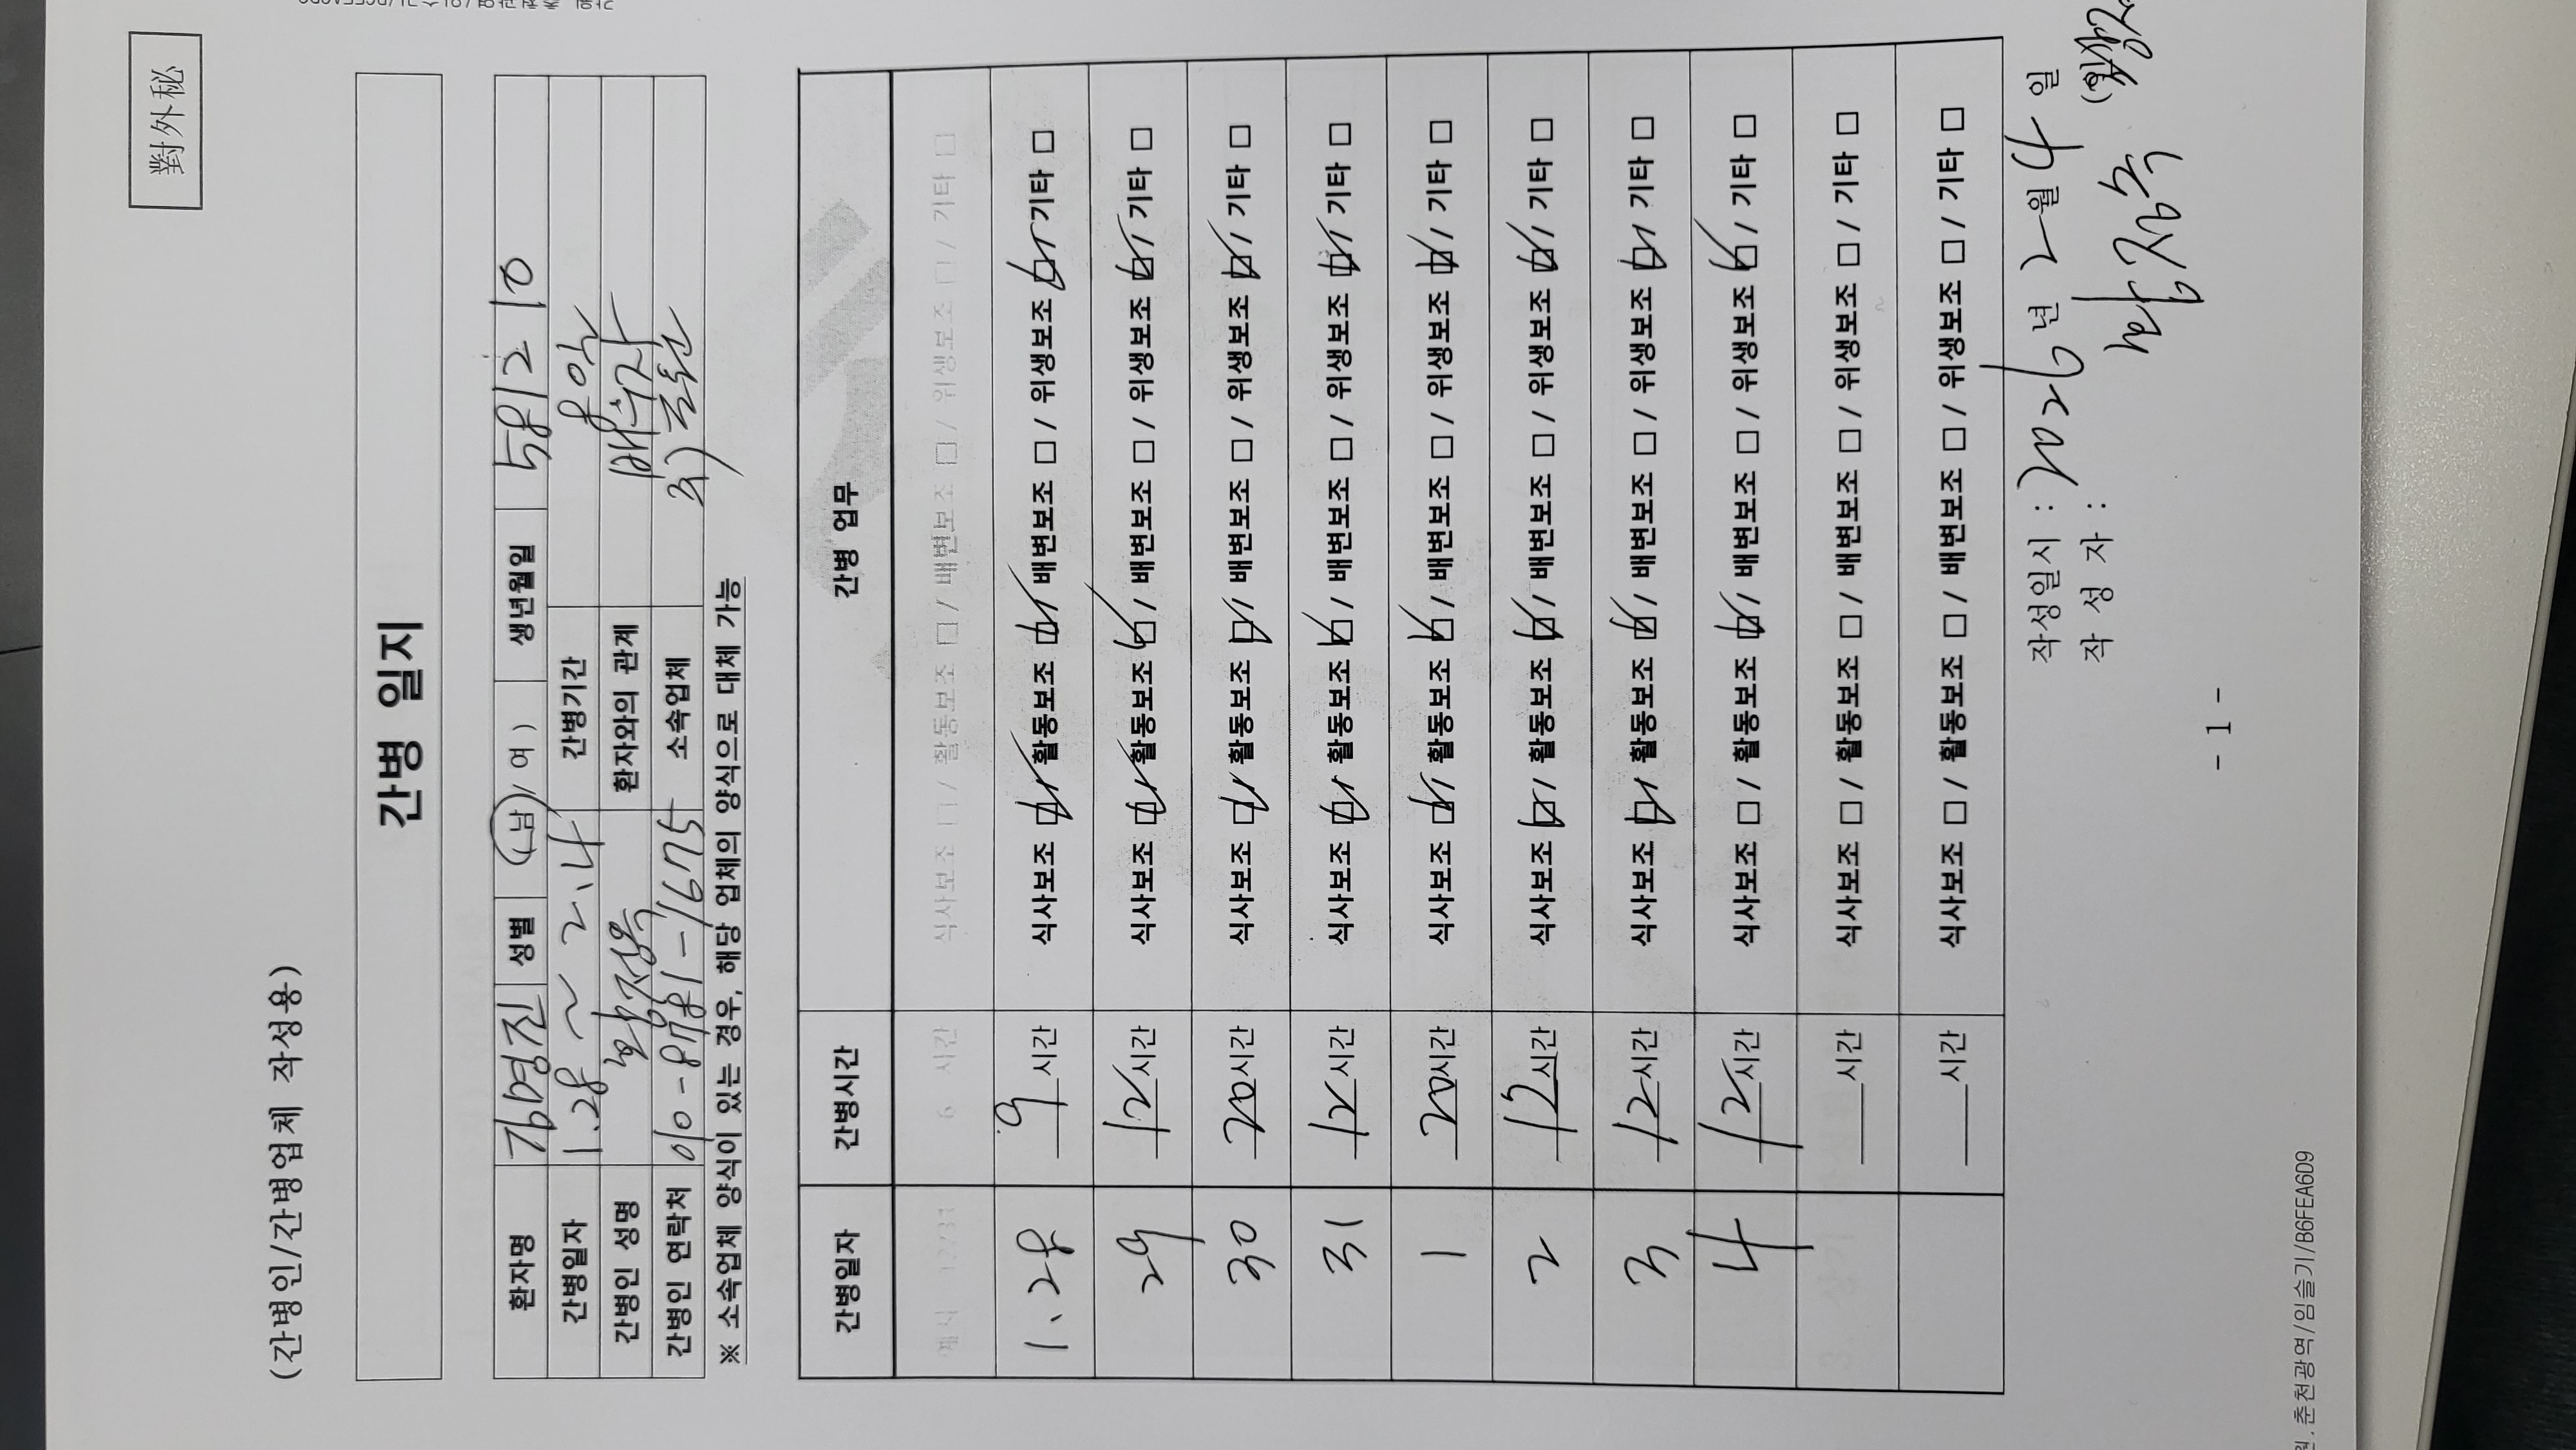 對外秘
(간병인/간병업체 작성용)
간병 일지
환자명 김명진 성별 (남/ 여) 생년월일 581210
간병일자 1.28 ~ 2.4 간병기간 8일
간병인 성명 간병기간 환자와의 관계 배우자
간병인 연락처 010-8781-1675 소속업체
※ 소속업체 양식이 있는 경우, 해당 업체의 양식으로 대체 가능
간병일자 간병시간 간병 업무
예시 12/31 6 시간 식사보조 □ / 활동보조 □ / 배변보조 □ / 위생보조 □ / 기타 □
1.28 9 시간 식사보조 ☑ / 활동보조 ☑ / 배변보조 □ / 위생보조 ☑ / 기타 □
29 12 시간 식사보조 ☑ / 활동보조 ☑ / 배변보조 □ / 위생보조 ☑ / 기타 □
30 시간 식사보조 ☑ / 활동보조 ☑ / 배변보조 □ / 위생보조 ☑ / 기타 □
31 12 시간 식사보조 ☑ / 활동보조 ☑ / 배변보조 □ / 위생보조 ☑ / 기타 □
1 시간 식사보조 ☑ / 활동보조 ☑ / 배변보조 □ / 위생보조 ☑ / 기타 □
2 12 시간 식사보조 ☑ / 활동보조 ☑ / 배변보조 □ / 위생보조 ☑ / 기타 □
3 12 시간 식사보조 ☑ / 활동보조 ☑ / 배변보조 □ / 위생보조 ☑ / 기타 □
4 12 시간 식사보조 □ / 활동보조 ☑ / 배변보조 □ / 위생보조 ☑ / 기타 □
시간 식사보조 □ / 활동보조 □ / 배변보조 □ / 위생보조 □ / 기타 □
시간 식사보조 □ / 활동보조 □ / 배변보조 □ / 위생보조 □ / 기타 □
작성일시 : 2026년 2월 4일
작 성 자 :
- 1 -
춘천광역/임슬기/B6FEA6D9